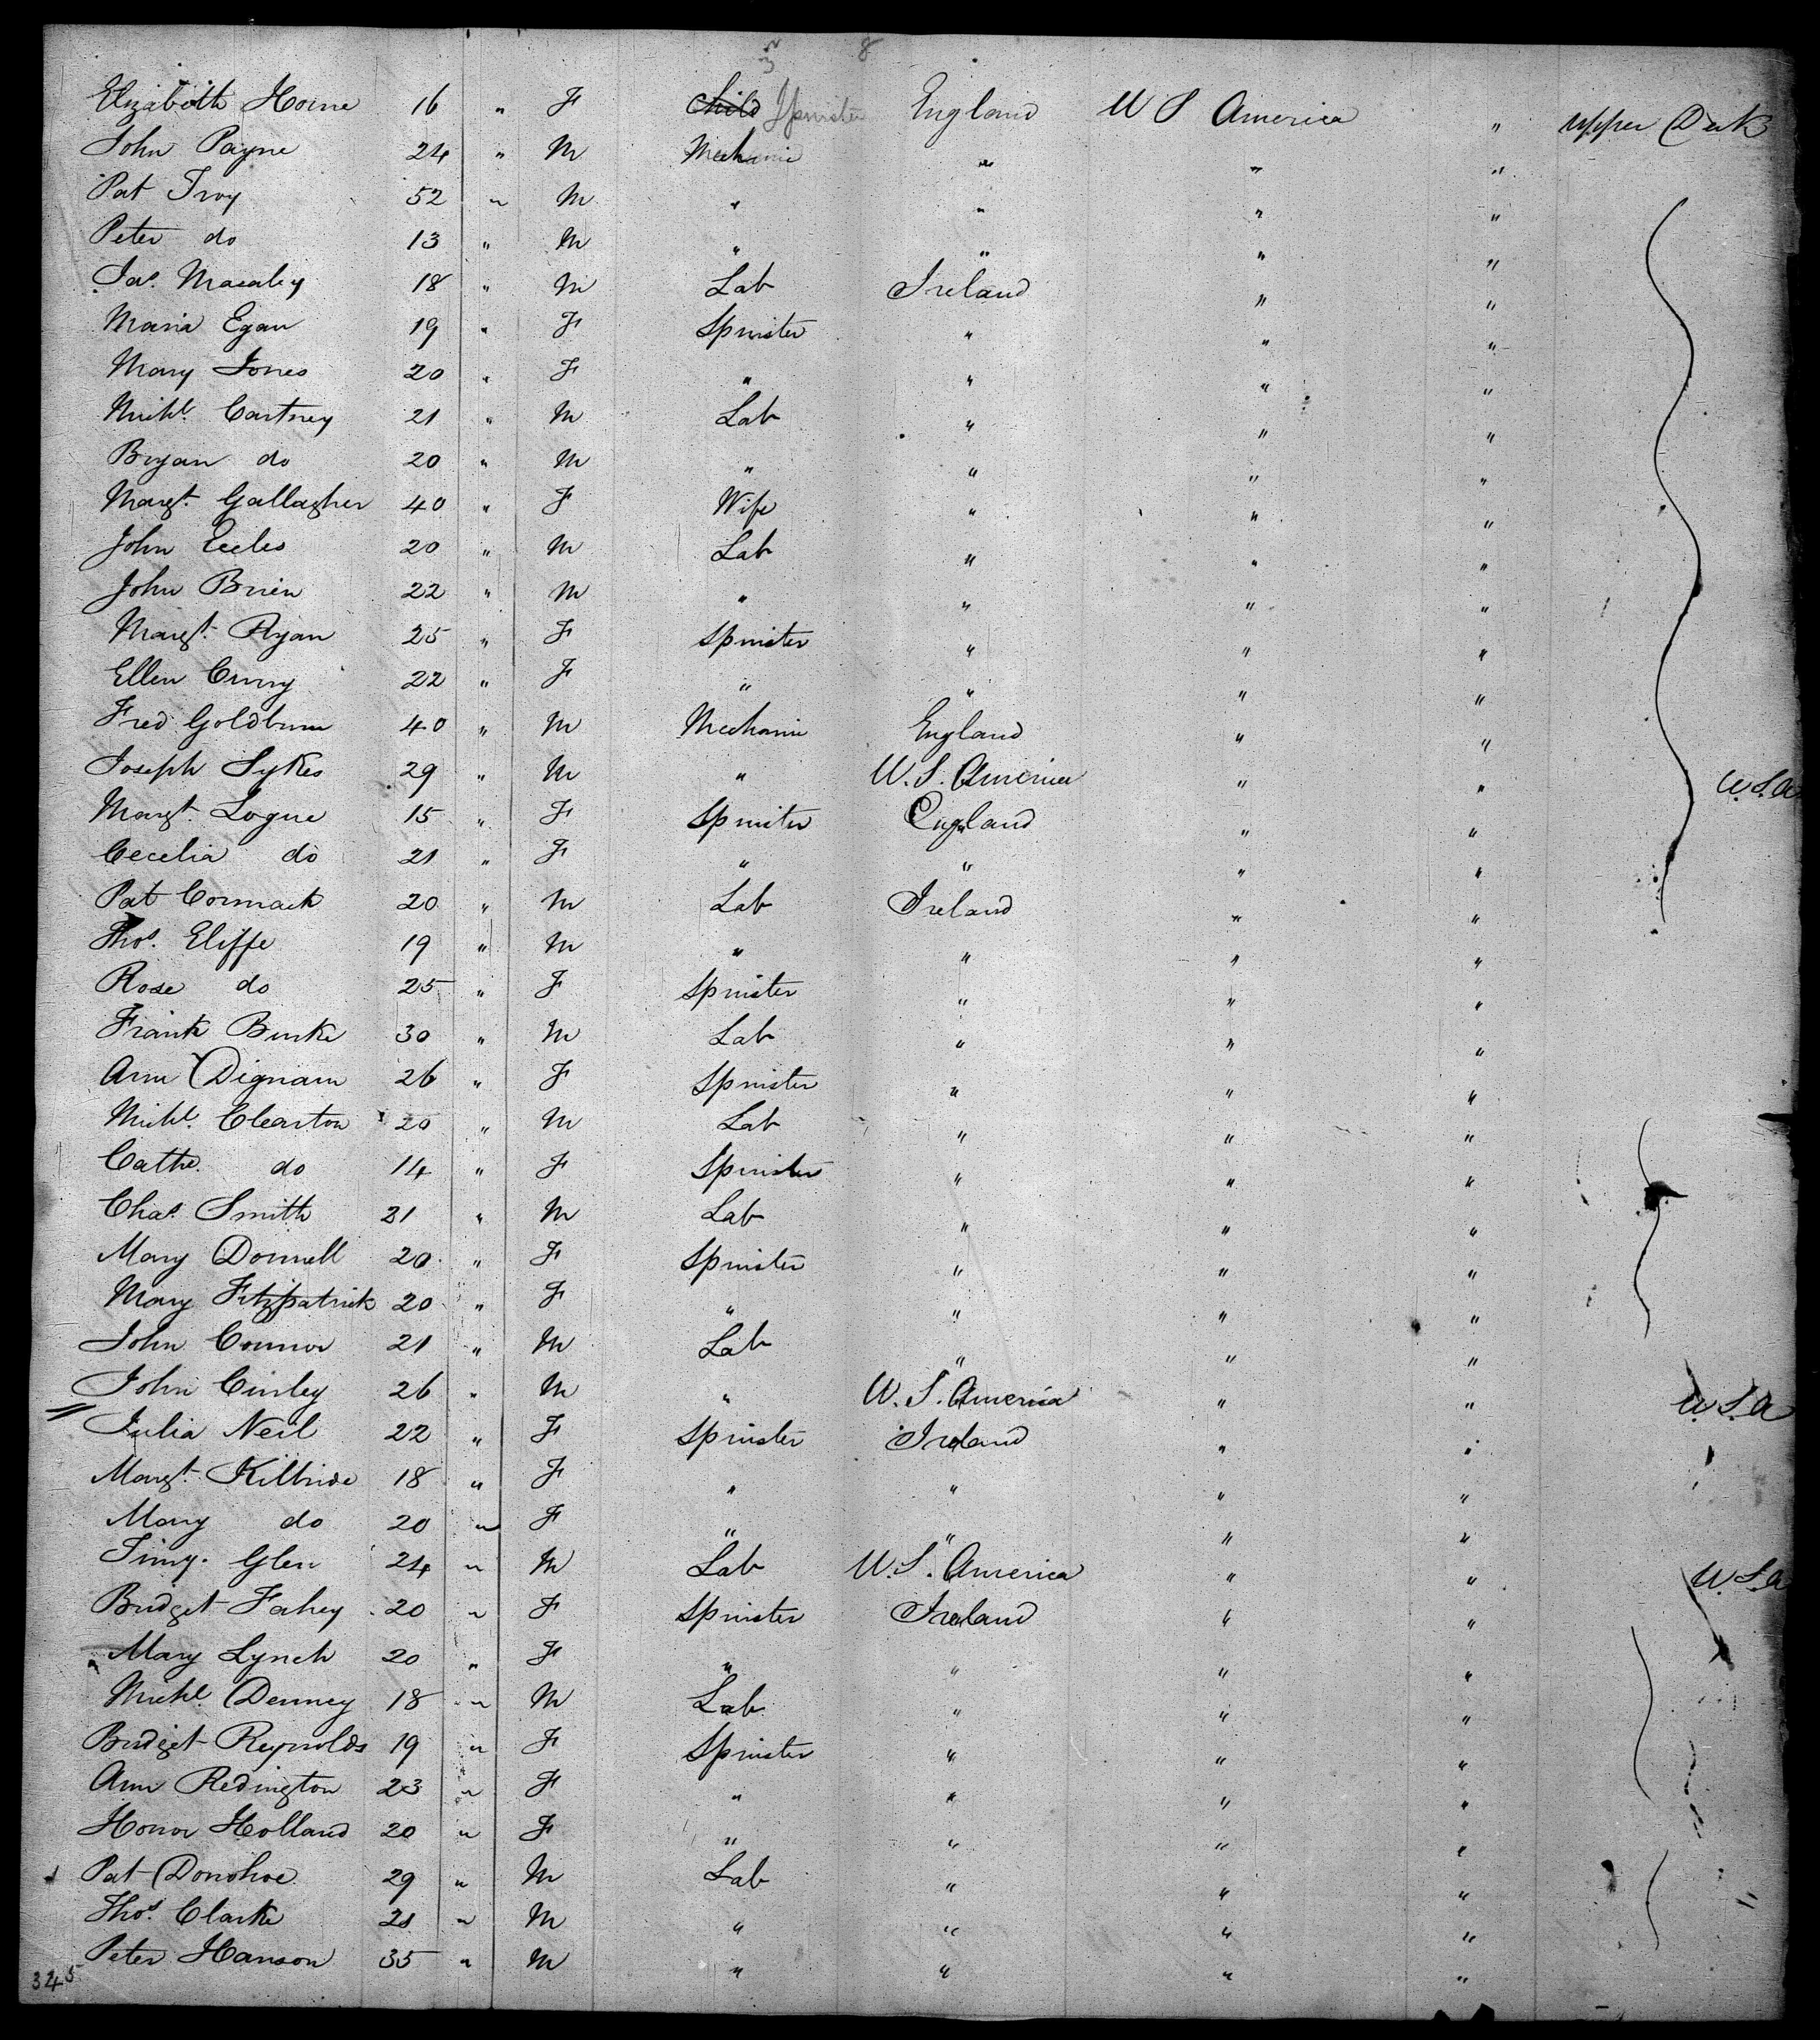 8
Elizabeth Horne 16 " F Child Spinster England U S America " Upper Deck
John Payne 24 " M Mechanic " " "
Pat Troy 52 " M " " " "
Peter do 13 " M " " " "
Jas. Macaley 18 " M Lab Ireland " "
Maria Egan 19 " F Spinster " " "
Mary Jones 20 " F " " " "
Michl. Cartney 21 " M Lab " " "
Bryan do 20 " M " " " "
Margt. Gallagher 40 " F Wife " " "
John Eccles 20 " M Lab " " "
John Brien 22 " M " " " "
Margt. Ryan 25 " F Spinster " " "
Ellen Curry 22 " F " " " "
Fred Goldbum 40 " M Mechanic England " "
Joseph Sykes 29 " M " U.S. America " " U.S.A
Margt. Logue 15 " F Spinster England " "
Cecelia do 21 " F " " " "
Pat Cormack 20 " M Lab Ireland " "
Thos. Eliffe 19 " M " " " "
Rose do 25 " F Spinster " " "
Frank Burke 30 " M Lab " " "
Ann Dignam 26 " F Spinster " " "
Michl. Clearton 20 " M Lab " " "
Cathe. do 14 " F Spinster " " "
Chas. Smith 21 " M Lab " " "
Mary Donnell 20 " F Spinster " " "
Mary Fitzpatrick 20 " F " " " "
John Connor 21 " M Lab " " "
John Curley 26 " M " U.S. America " " U.S.A
Julia Neil 22 " F Spinster Ireland " "
Margt. Kilbride 18 " F " " " "
Mary do 20 " F " " " "
Timy. Glen 24 " M Lab U.S. America " " U.S.A
Bridget Fahey 20 " F Spinster Ireland " "
Mary Lynch 20 " F " " " "
Michl. Denney 18 " M Lab " " "
Bridget Reynolds 19 " F Spinster " " "
Ann Redington 23 " F " " " "
Honor Holland 20 " F " " " "
Pat Donohoe 29 " M Lab " " "
Thos. Clarke 21 " M " " " "
Peter Hanson 35 " M " " " "
345